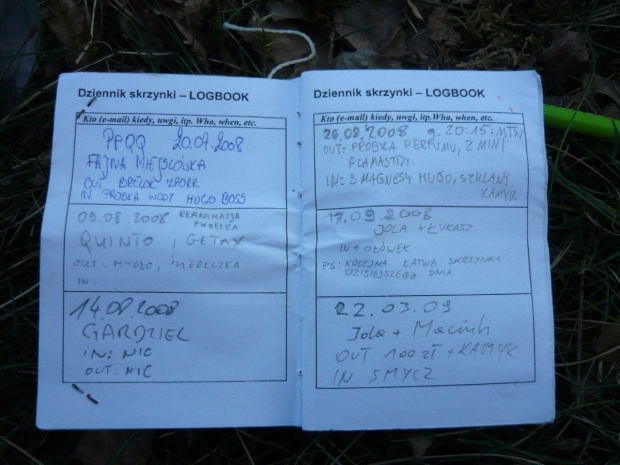 Dziennik skrzynki – LOGBOOK
Kto (e-mail) kiedy, uwgi, itp. Who, when, etc.
PPQQ 20.07.2008
FAJNA MIEJSCÓWKA
OUT BRELOK
IN PRÓBKA WODY HUGO BOSS
09.08.2008 REANIMACJA
PUDEŁKA
QUINTO, GETAX
OUT: MYDŁO,
IN:
14.08.2008
GARDZIEL
IN: NIC
OUT: NIC
Dziennik skrzynki – LOGBOOK
Kto (e-mail) kiedy, uwgi, itp.Who, when, etc.
26.08.2008 g. 20:15: MTW
OUT: PRÓBKA PERFUMU, 2 MINI
FLAMASTRY.
IN: 3 MAGNESY HUGO, SZKLANY
KAMYK
17.09 2008
JOLA + ŁUKASZ
IN + OŁÓWEK
PS. KOLEJNA ŁATWA SKRZYNKA
DZISIEJSZEGO DNIA
22.03.09
Jola +
OUT 100 zł + KAMYK
IN SMYCZ